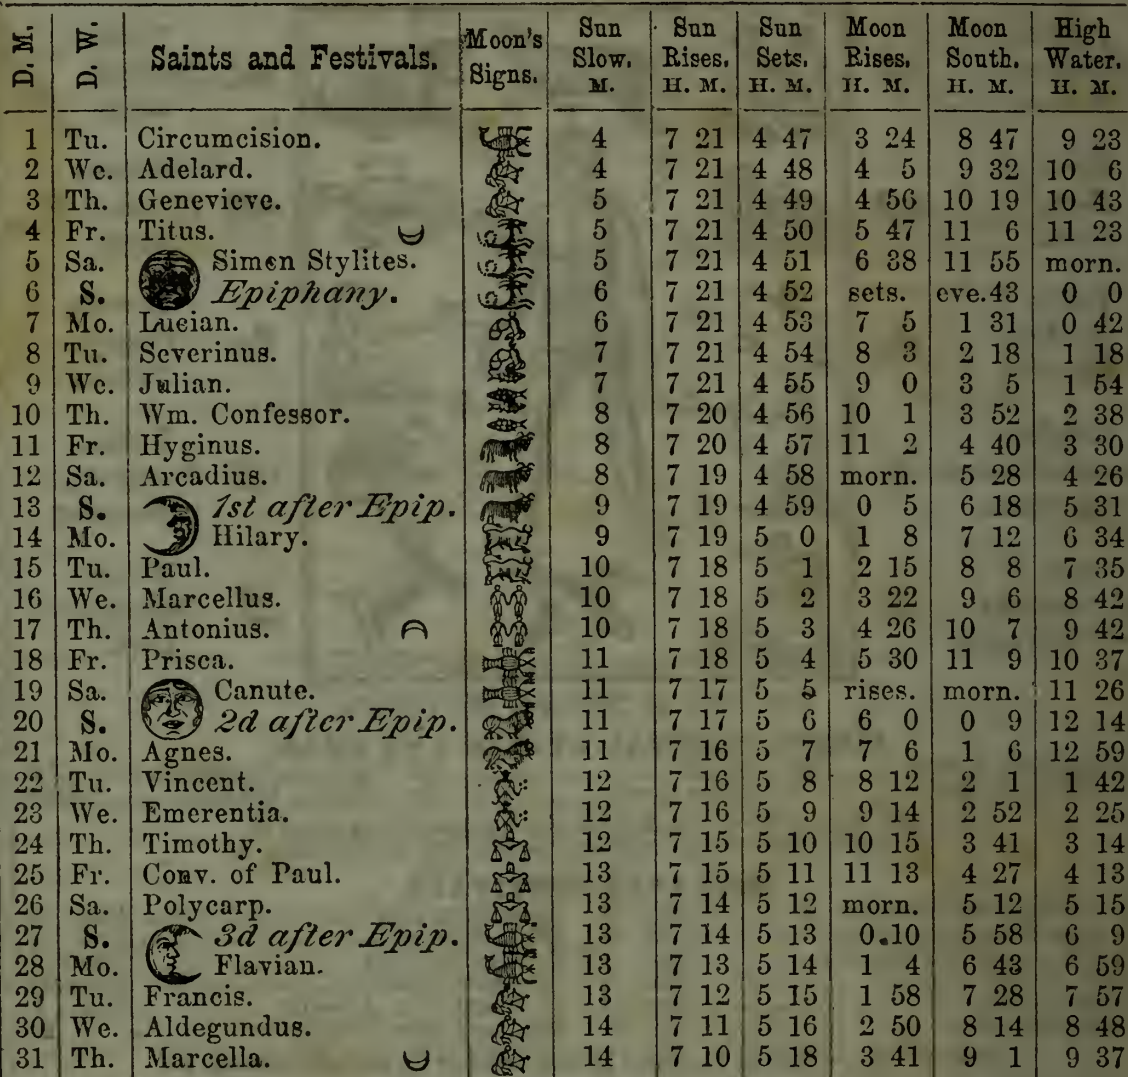 D. M. D. W. Saints and Festivals. Moon's Signs. Sun Slow. M. Sun Rises. H. M. Sun Sets. H. M. Moon Rises. H. M. Moon South. H. M. High Water. H. M.
1 Tu. Circumcision. 4 7 21 4 47 3 24 8 47 9 23
2 We. Adelard. 4 7 21 4 48 4 5 9 32 10 6
3 Th. Genevieve. 5 7 21 4 49 4 56 10 19 10 43
4 Fr. Titus. 5 7 21 4 50 5 47 11 6 11 23
5 Sa. Simen Stylites. 5 7 21 4 51 6 38 11 55 morn.
6 S. Epiphany. 6 7 21 4 52 sets. eve.43 0 0
7 Mo. Lucian. 6 7 21 4 53 7 5 1 31 0 42
8 Tu. Severinus. 7 7 21 4 54 8 3 2 18 1 18
9 We. Julian. 7 7 21 4 55 9 0 3 5 1 54
10 Th. Wm. Confessor. 8 7 20 4 56 10 1 3 52 2 38
11 Fr. Hyginus. 8 7 20 4 57 11 2 4 40 3 30
12 Sa. Arcadius. 8 7 19 4 58 morn. 5 28 4 26
13 S. 1st after Epip. 9 7 19 4 59 0 5 6 18 5 31
14 Mo. Hilary. 9 7 19 5 0 1 8 7 12 6 34
15 Tu. Paul. 10 7 18 5 1 2 15 8 8 7 35
16 We. Marcellus. 10 7 18 5 2 3 22 9 6 8 42
17 Th. Antonius. 10 7 18 5 3 4 26 10 7 9 42
18 Fr. Prisca. 11 7 18 5 4 5 30 11 9 10 37
19 Sa. Canute. 11 7 17 5 5 rises. morn. 11 26
20 S. 2d after Epip. 11 7 17 5 6 6 0 0 9 12 14
21 Mo. Agnes. 11 7 16 5 7 7 6 1 6 12 59
22 Tu. Vincent. 12 7 16 5 8 8 12 2 1 1 42
23 We. Emerentia. 12 7 16 5 9 9 14 2 52 2 25
24 Th. Timothy. 12 7 15 5 10 10 15 3 41 3 14
25 Fr. Conv. of Paul. 13 7 15 5 11 11 13 4 27 4 13
26 Sa. Polycarp. 13 7 14 5 12 morn. 5 12 5 15
27 S. 3d after Epip. 13 7 14 5 13 0.10 5 58 6 9
28 Mo. Flavian. 13 7 13 5 14 1 4 6 43 6 59
29 Tu. Francis. 13 7 12 5 15 1 58 7 28 7 57
30 We. Aldegundus. 14 7 11 5 16 2 50 8 14 8 48
31 Th. Marcella. 14 7 10 5 18 3 41 9 1 9 37